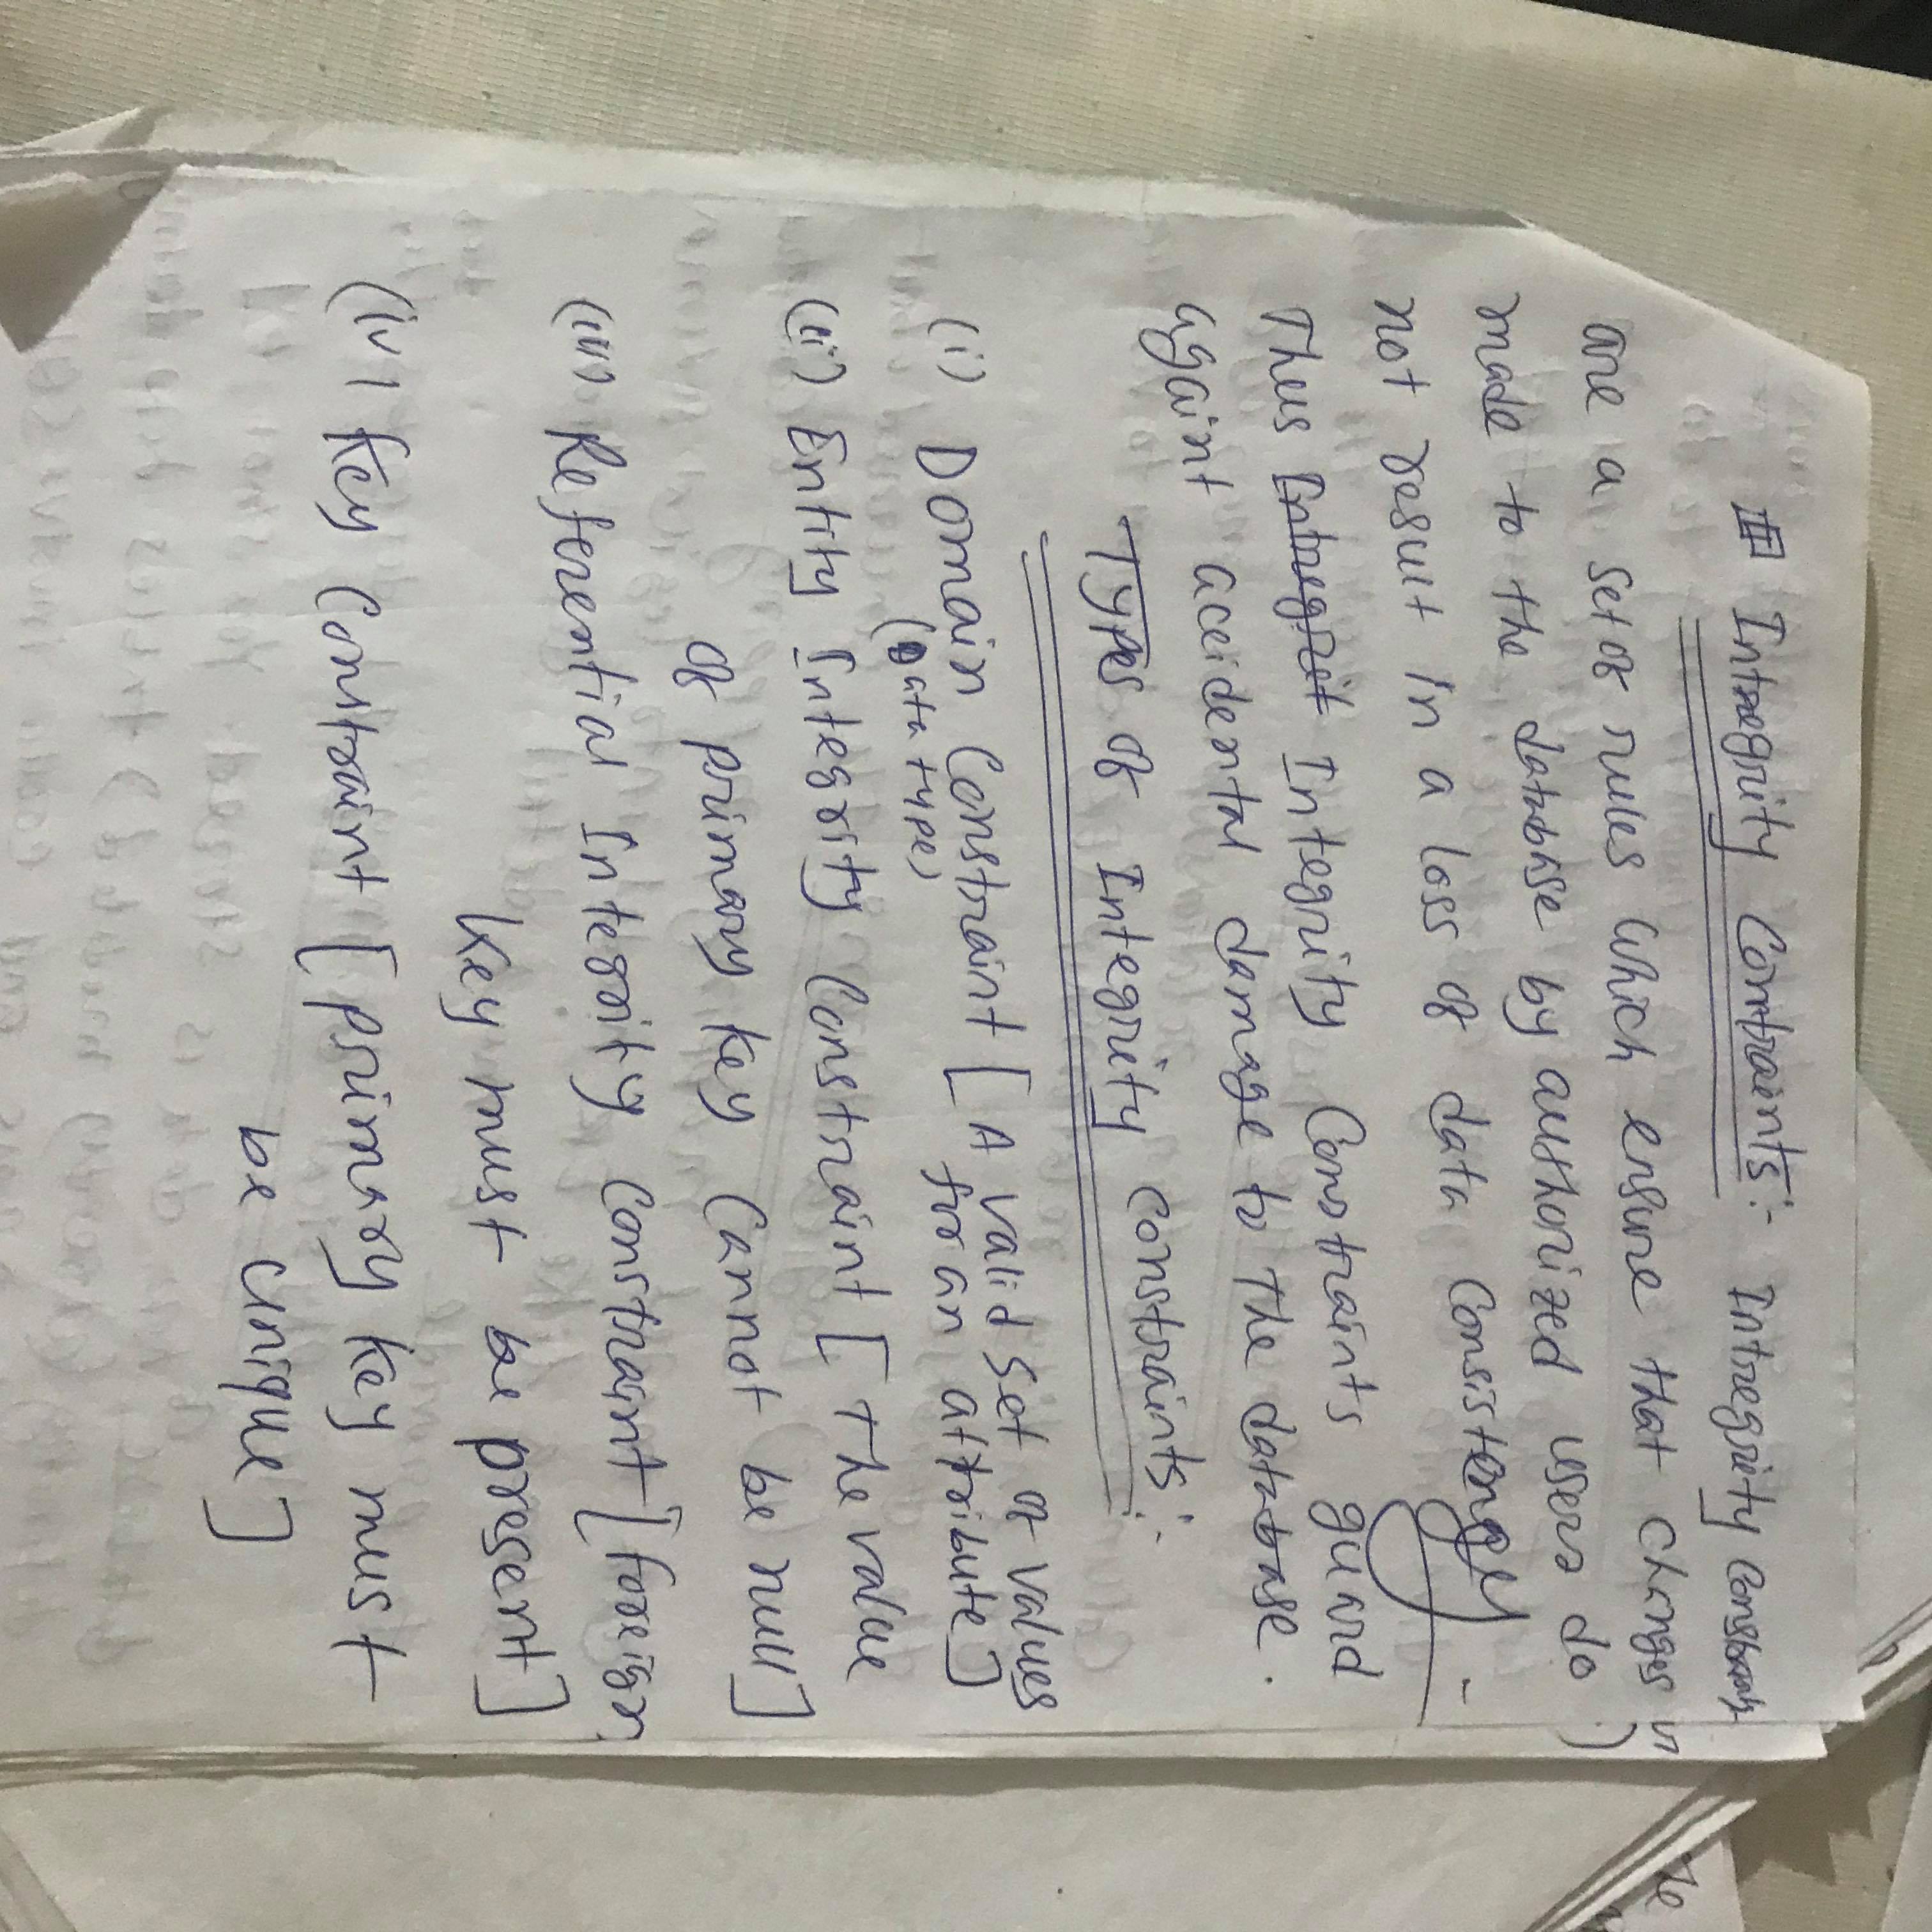 Intregrity Contraints:- Intregrity Constraints
are a set of rules which ensure that changes
made to the database by authorized users do
not result in a loss of data consistency
Thus Intregrit Integrity Constraints guard
againt accidental damage to The database.
Types of Integrity constraints:-
(i) Domain Constraint [A valid set of values
(Data type) for an attribute]
(ii) Entity Integrity Constraint [The value
of primary key cannot be null]
(iii) Referential Integrity constraint [foreign
key must be present]
(iv) Key Constraint [primary key must
be unique]